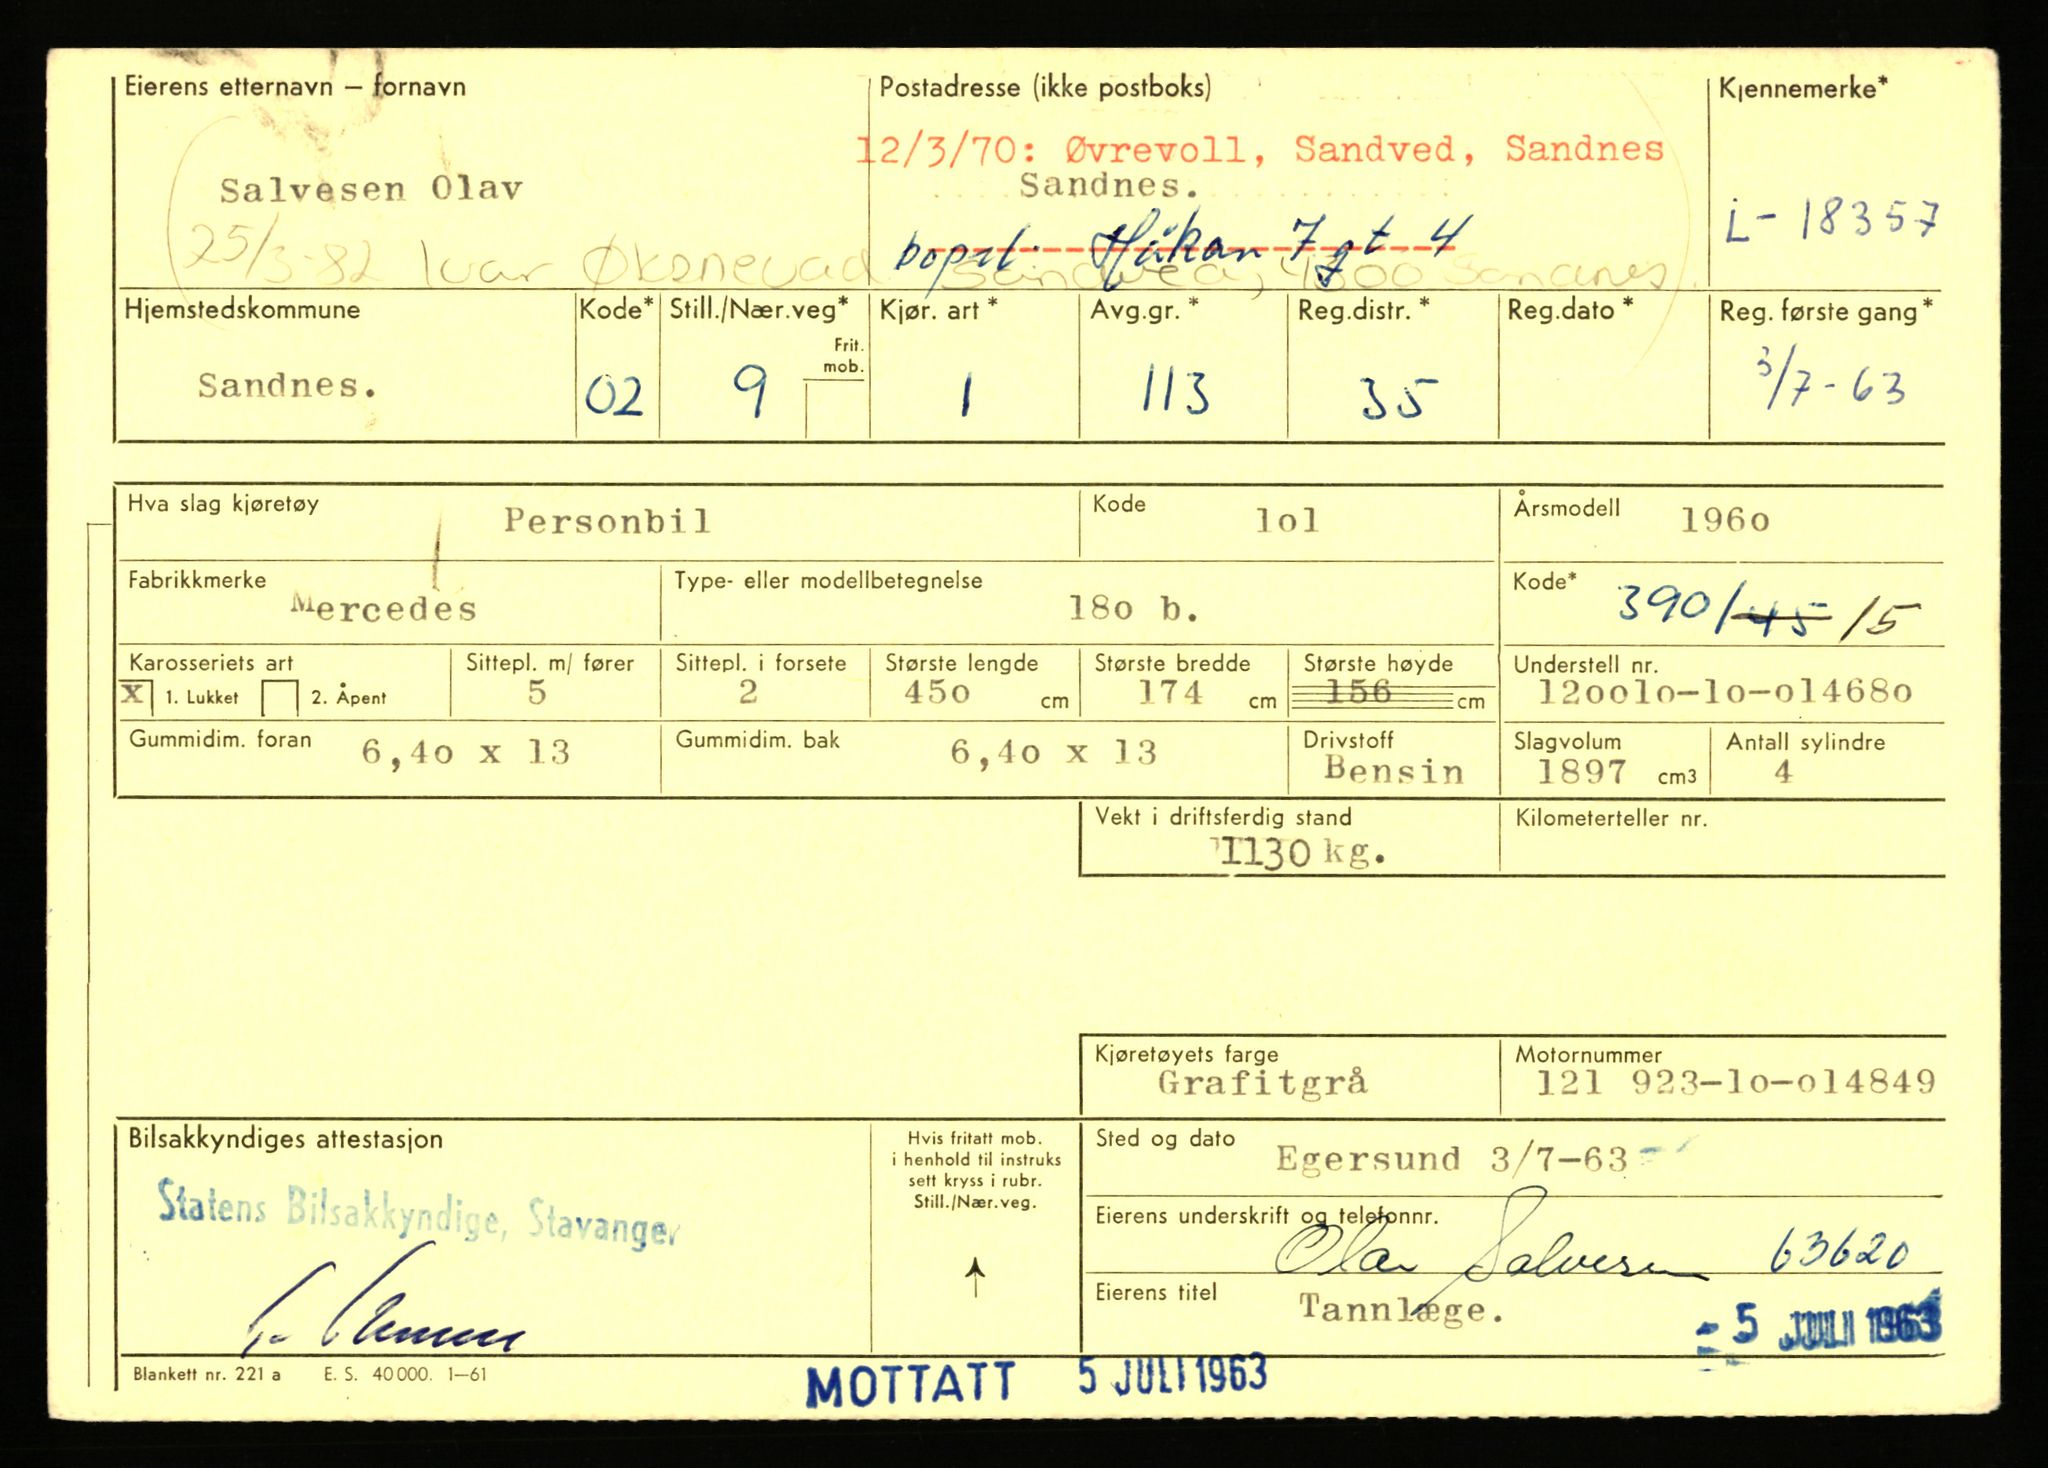 Eierens etternavn – fornavn
Postadresse (ikke postboks)
Kjennemerke*
12/3/70: Øvrevoll, Sandved, Sandnes
Salvesen Olav
Sandnes.
L- 18357
bopel: Håkon 7 gt 4
25/3-82 Ivar Øksnevad Sandved, 4300 Sandnes.
Hjemstedskommune
Kode*
Still./Nær.veg*
Kjør. art *
Avg.gr. *
Reg.distr. *
Reg.dato *
Reg. første gang *
Frit. mob.
Sandnes.
02
9
1
113
35
3/7-63
Hva slag kjøretøy
Personbil
Kode
lol
Årsmodell
196o
Fabrikkmerke
Mercedes
Type- eller modellbetegnelse
18o b.
Kode*
390/45/5
Karosseriets art
Sittepl. m/ fører
Sittepl. i forsete
Største lengde
Største bredde
Største høyde
Understell nr.
X 1. Lukket 2. Åpent
5
2
45o cm
174 cm
156 cm
12oolo-lo-o1468o
Gummidim. foran
6,4o x 13
Gummidim. bak
6,4o x 13
Drivstoff
Bensin
Slagvolum
1897 cm3
Antall sylindre
4
Vekt i driftsferdig stand
1130 kg.
Kilometerteller nr.
Kjøretøyets farge
Grafitgrå
Motornummer
121 923-lo-o14849
Bilsakkyndiges attestasjon
Statens Bilsakkyndige, Stavanger
Hvis fritatt mob.
i henhold til instruks
sett kryss i rubr.
Still./Nær.veg.
Sted og dato
Egersund 3/7-63
Eierens underskrift og telefonnr.
Olav Salvesen 63620
Eierens titel
Tannlæge.
- 5 JULI 1963
Blankett nr. 221 a E. S. 40 000. 1–61
MOTTATT 5 JULI 1963